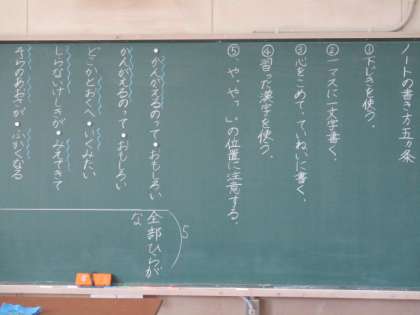 ノートの書き方五カ条
①下じきを使う。
②一マスに一文字書く。
③心をこめて、ていねいに書く。
④習った漢字を使う。
⑤、や。やっ」の位置に注意する。
•かんがえるのって•おもしろい
かんがえるのって•おもしろい
どこかとおくへ•いくみたい
しらないけしきが•みえてきて
そらのあおさが•ふかくなる
5
全部ひらが
な